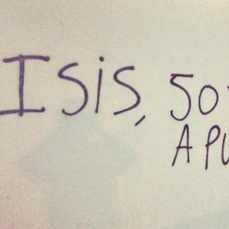 ISiS, 50
A PU